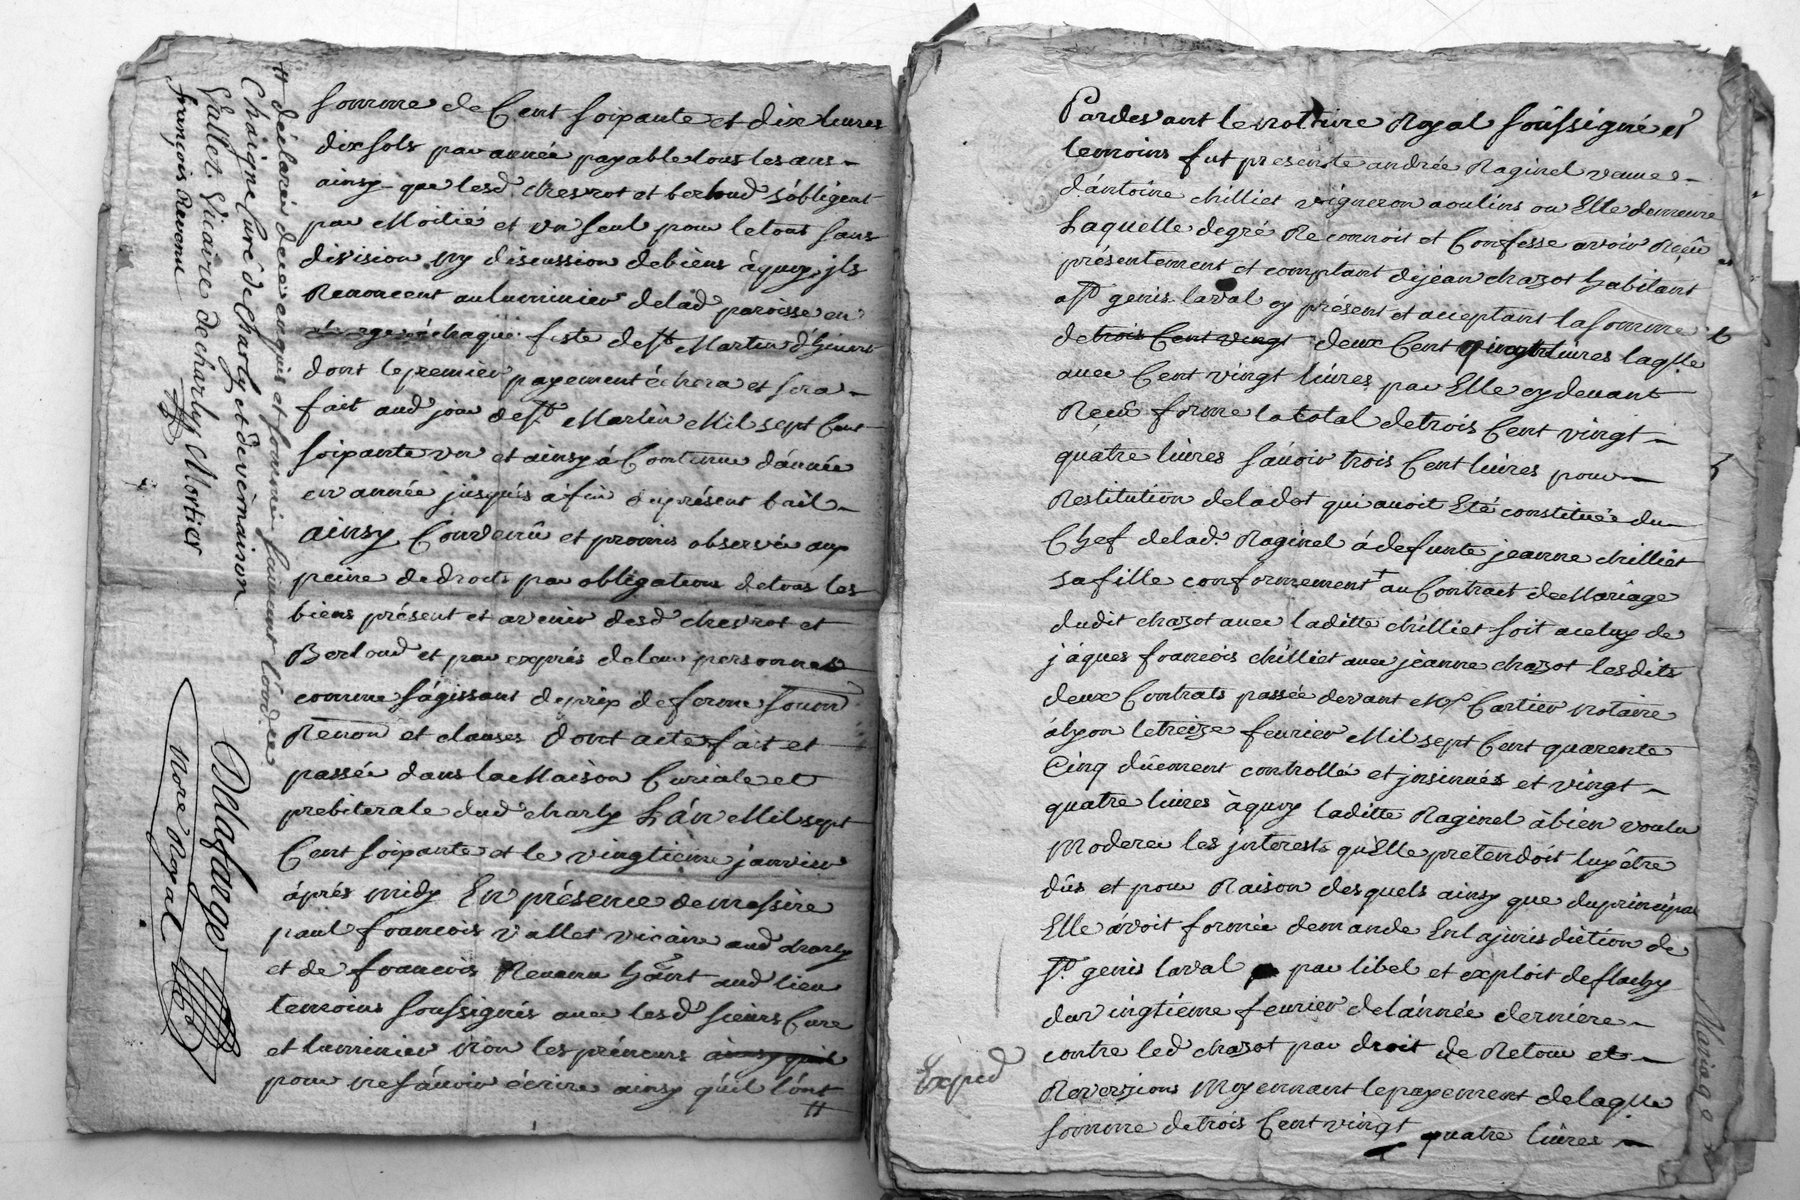 somme de Cent soixante et dix livres
dix sols par année payable tous les ans
ainsy que lesd chevrot et berloud s'obligent
par Moitié et un seul pour le tout sans
division ny discussion de biens à quoy jls
Renoncent au luminier de lad paroisse en
chaque feste de st Martin d'hivert
dont le premier payement échera et sera
fait aud jour de st Martin Mil sept Cent
soixante un et ainsy á Continuer d'année
en année jusques á fin du présent bail
ainsy Convenu et promis observé aux
peine de droits par obligations de tous les
biens présent et avenir desd chevrot et
Berloud et par exprés de leur personnes
comme s'agissant de prix de ferme soum
Renon et clauses dont acte fait et
passée dans la Maison Curiale et
prebiterale dud charly L'án Mil sept
Cent soixante et le vingtieme janvier
áprés midy En présence de messire
paul francois vallet vicaire aud charly
et de francois Revenu hant aud lieu
temoins soussignés avec lesd sieurs Cure
et luminier non les préneurs ainsy quil
pour ne sávoir écrire ainsy qu'il l'ont
#
# déclaré de ce enquis et sommé suivant l'ordce
Chaigne Curé de Charly et de vernaison
Vallet Vicaire de charly Mortier
françois Revenu
Delaflarge
Nore Royal
Pardevant le nottaire Royal soussigné et
temoins fut presente andrée Raginel veuve
d'ántoine chilliet vigneron a oulins ou Elle demeure
Laquelle de gré Reconnoit et Confesse avoir Reçû
présentement et comptant de jéan chazot habitant
a st genis laval cy présent et acceptant la somme
de trois Cent vingt deux Cent livres laqlle
avec Cent vingt livres par Elle cy devant
Reçû forme la total de trois Cent vingt
quátre livres sávoir trois Cent livres pour
Restitution de la dot qui avoit Eté constituée du
Chef de lad. Raginel á defunte jeanne chilliet
sa fille conformement au Contrait de Máriage
dudit chazot avec laditte chilliet soit a celuy de
jáques francois chilliet avec jeanne chazot lesdits
deux Contrats passée devant Me Cartier notaire
á lyon le treize fevrier Mil sept Cent quarente
Cinq dûement controllé et jnsinués et vingt
quatre livres à quoy laditte Raginel à bien voulu
Moderer les jnterests qu'Elle pretendoit luy être
dûs et pour Raison desquels ainsy que du principal
Elle ávoit formée demande En la jurisdiction de
st. genis laval par libel et exploit de flachy
du vingtiéme fevrier de l'année derniére
contre led chazot par droit de Retour et
Reversions Moyennant le payement de laqlle
somme de trois Cent vingt quatre livres
Exped